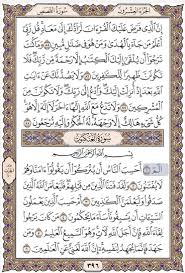 الجزء العشرون سورة القصص
إِنَّ ٱلَّذِى فَرَضَ عَلَيْكَ ٱلْقُرْءَانَ لَرَآدُّكَ إِلَىٰ مَعَادٍ قُل رَّبِّىٓ
أَعْلَمُ مَن جَآءَ بِٱلْهُدَىٰ وَمَنْ هُوَ فِى ضَلَٰلٍ مُّبِينٍ ٨٥ وَمَا كُنتَ
تَرْجُوٓا۟ أَن يُلْقَىٰٓ إِلَيْكَ ٱلْكِتَٰبُ إِلَّا رَحْمَةً مِّن رَّبِّكَ فَلَا
تَكُونَنَّ ظَهِيرًا لِّلْكَٰفِرِينَ ٨٦ وَلَا يَصُدُّنَّكَ عَنْ ءَايَٰتِ ٱللَّهِ
بَعْدَ إِذْ أُنزِلَتْ إِلَيْكَ وَٱدْعُ إِلَىٰ رَبِّكَ وَلَا تَكُونَنَّ مِنَ
ٱلْمُشْرِكِينَ ٨٧ وَلَا تَدْعُ مَعَ ٱللَّهِ إِلَٰهًا ءَاخَرَ لَآ إِلَٰهَ إِلَّا هُوَ
كُلُّ شَىْءٍ هَالِكٌ إِلَّا وَجْهَهُۥ لَهُ ٱلْحُكْمُ وَإِلَيْهِ تُرْجَعُونَ ٨٨
سورة العنكبوت
بِسْمِ ٱللَّهِ ٱلرَّحْمَٰنِ ٱلرَّحِيمِ
الٓمٓ ١ أَحَسِبَ ٱلنَّاسُ أَن يُتْرَكُوٓا۟ أَن يَقُولُوٓا۟ ءَامَنَّا وَهُمْ
لَا يُفْتَنُونَ ٢ وَلَقَدْ فَتَنَّا ٱلَّذِينَ مِن قَبْلِهِمْ فَلَيَعْلَمَنَّ ٱللَّهُ
ٱلَّذِينَ صَدَقُوا۟ وَلَيَعْلَمَنَّ ٱلْكَٰذِبِينَ ٣ أَمْ حَسِبَ ٱلَّذِينَ
يَعْمَلُونَ ٱلسَّيِّـَٔاتِ أَن يَسْبِقُونَا سَآءَ مَا يَحْكُمُونَ ٤ مَن كَانَ
يَرْجُوا۟ لِقَآءَ ٱللَّهِ فَإِنَّ أَجَلَ ٱللَّهِ لَـَٔاتٍ وَهُوَ ٱلسَّمِيعُ ٱلْعَلِيمُ ٥
وَمَن جَٰهَدَ فَإِنَّمَا يُجَٰهِدُ لِنَفْسِهِۦٓ إِنَّ ٱللَّهَ لَغَنِىٌّ عَنِ ٱلْعَٰلَمِينَ ٦
٣٩٦